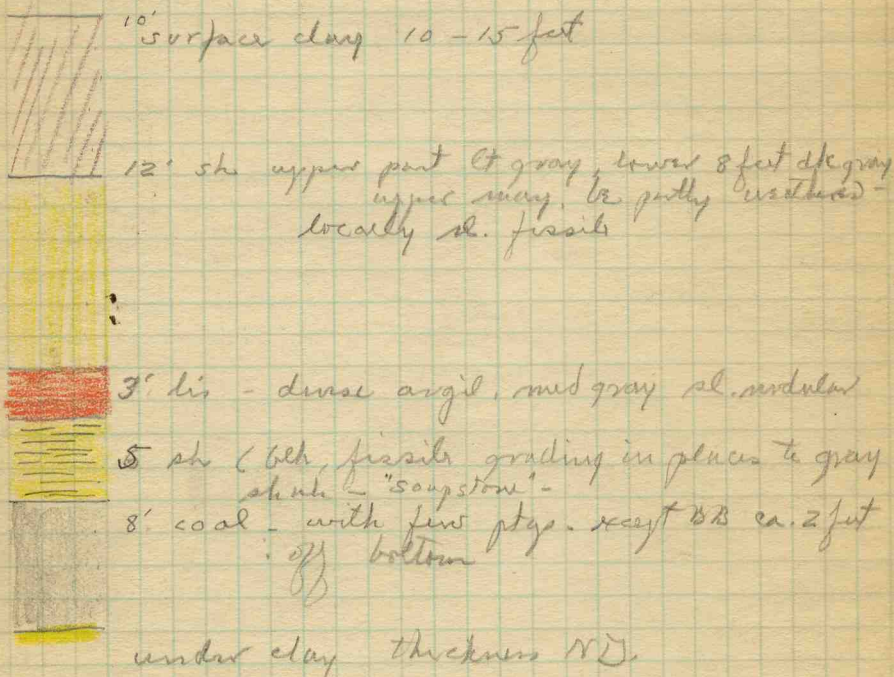 10' surface clay 10 - 15 feet
12' sh upper part lt gray, lower 8 feet dk gray
upper may be partly weathered -
locally sl. fissile
3' lis - dense argil. med gray sl. nodular
5 sh (blk, fissile grading in places to gray
shale - "soapstone" -
8' coal - with few ptgs. except BB ca. 2 feet
off bottom
under clay thickness ND.